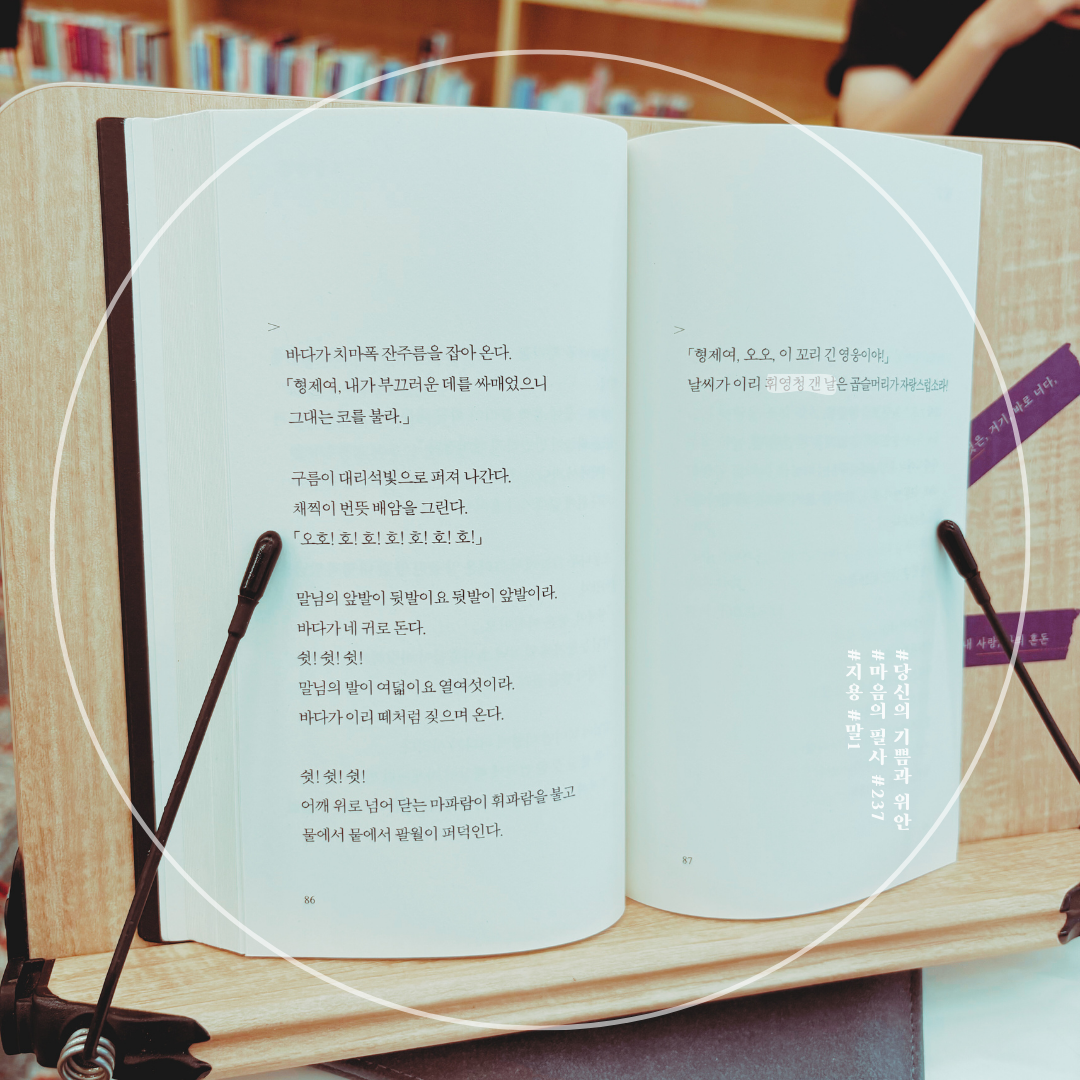 >
바다가 치마폭 잔주름을 잡아 온다.
「형제여, 내가 부끄러운 데를 싸매었으니
그대는 코를 불라.」
구름이 대리석빛으로 퍼져 나간다.
채찍이 번뜻 배암을 그린다.
「오호! 호! 호! 호! 호! 호! 호!」
말님의 앞발이 뒷발이요 뒷발이 앞발이라.
바다가 네 귀로 돈다.
쉿! 쉿! 쉿!
말님의 발이 여덟이요 열여섯이라.
바다가 이리 떼처럼 짖으며 온다.
쉿! 쉿! 쉿!
어깨 위로 넘어 닫는 마파람이 휘파람을 불고
물에서 뭍에서 팔월이 퍼덕인다.
86
>
「형제여, 오오, 이 꼬리 긴 영웅이야!」
날씨가 이리 휘영청 갠 날은 곱슬머리가 자랑스럽소라!
87
거기, 바로 너다.
내 사랑, 혼돈
#당신의 기쁨과 위안
#마음의 필사 #237
#지용 #말1